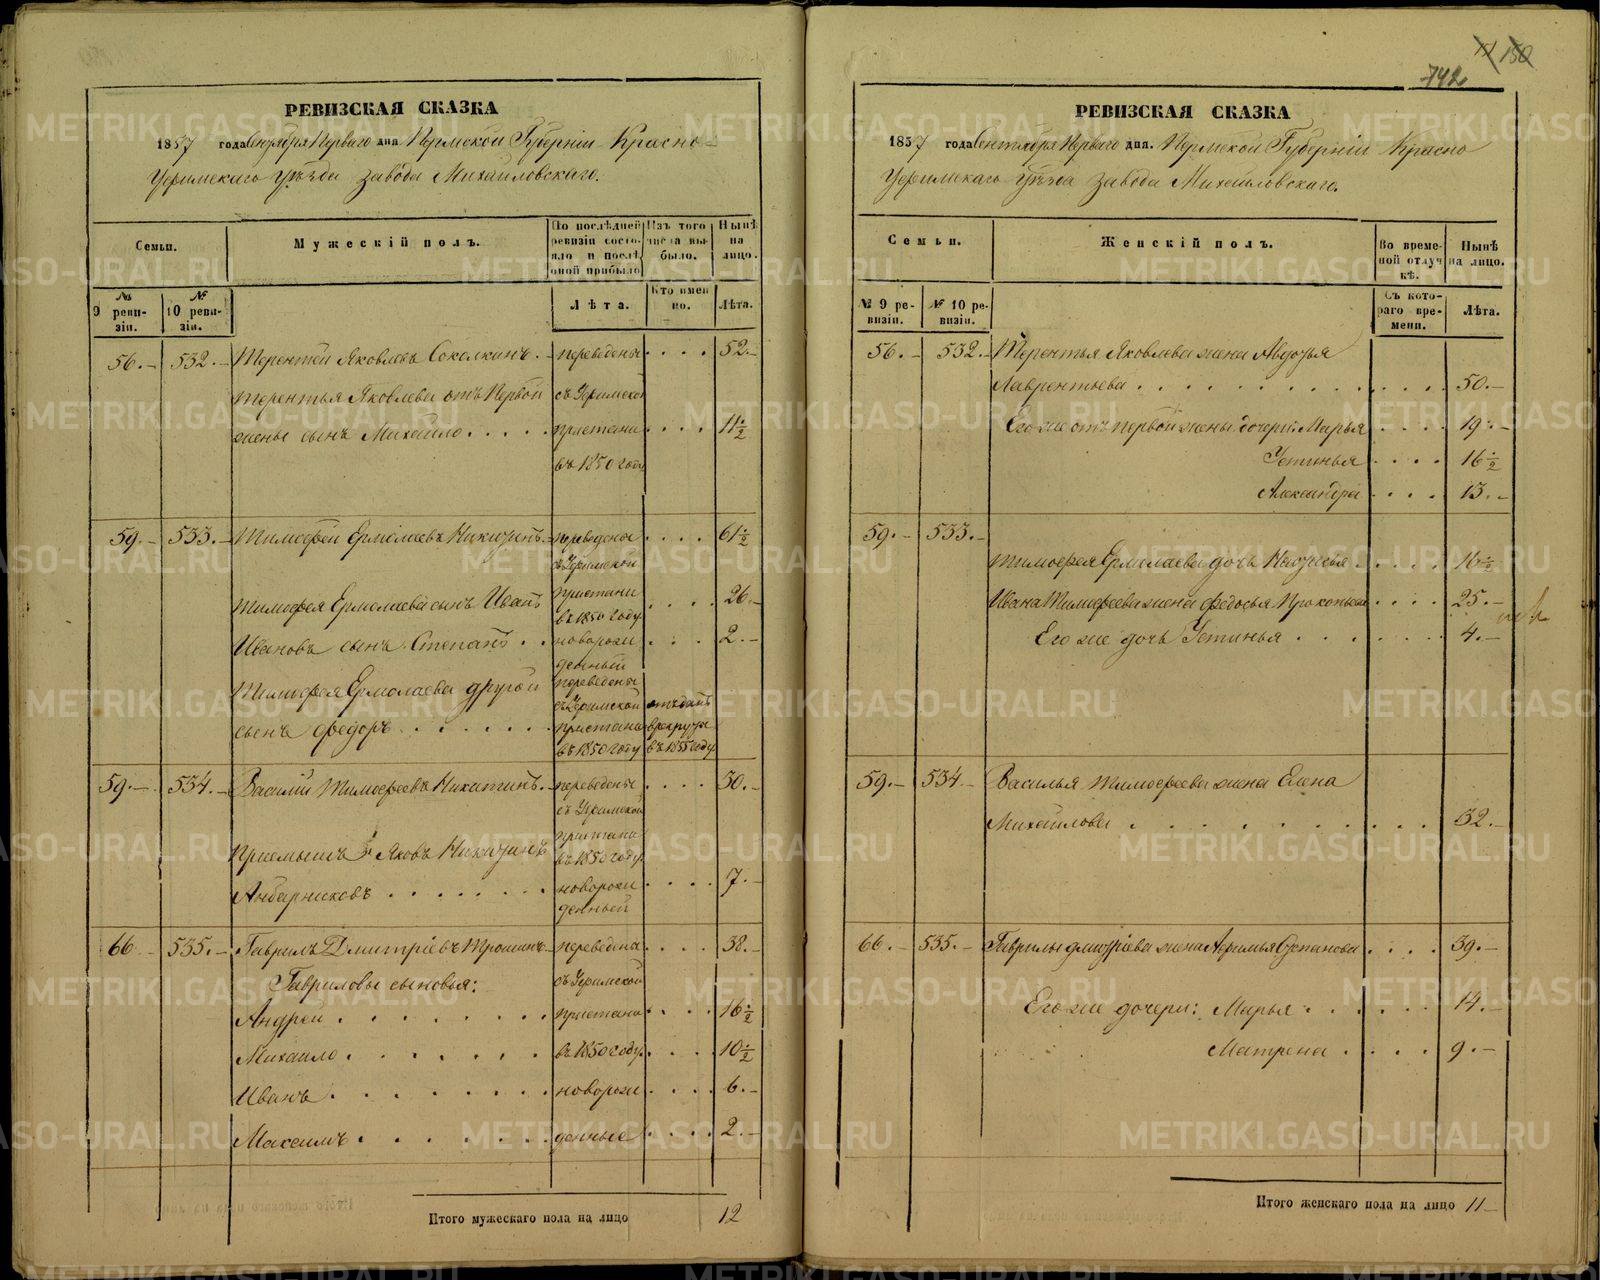 РЕВИЗСКАЯ СКАЗКА
1857 года Сентября Перваго дня Пермской Губерніи Красно
Уфимскаго Уѣзда завода Михайловскаго.
Семьи.
Мужескій полъ.
По послѣдней ревизіи состояло и послѣ оной прибыло
Изъ того числа выбыло.
Нынѣ на лицо.
№ 9 ревизіи.
№ 10 ревизіи.
Лѣта.
Кто именно.
Лѣта.
56. 532. Терентей Яковлевъ Соколкинъ. переведены 52.
Терентья Яковлева отъ Первой съ Уфимской
жены сынъ Михайло пристани 11 1/2
въ 1850 году
59. 533. Тимофей Ермолаевъ Никитинъ переведены 61 1/2
съ Уфимской
Тимофея Ермолаева сынъ Иванъ пристани 26.
въ 1850 году
Ивановъ сынъ Степанъ новорож 2.
денный
Тимофея Ермолаева другой переведены
съ Уфимской отъданъ
сынъ Федоръ пристани врекруты
въ 1850 году въ 1855 году
59. 534. Василій Тимофеевъ Никитинъ. переведены 30.
съ Уфимской
пристани
Приемышъ Яковъ Никитинъ въ 1850 году
Анбарниковъ новорож 7.
денный
66 535. Гаврилъ Дмитріевъ Трошинъ переведены 38.
Гавриловы сыновья: съ Уфимской
Андрей пристани 16 1/2
Михайло въ 1850 году 10 1/2
Иванъ новорож 6.
Максимъ денные 2.
Итого мужескаго пола на лицо 12
151 150
742
РЕВИЗСКАЯ СКАЗКА
1857 года Сентября Перваго дня. Пермской Губерніи Красно
Уфимскаго Уѣзда завода Михайловскаго.
Семьи.
Женскій полъ.
Во временной отлучкѣ.
Нынѣ на лицо.
№ 9 ревизіи.
№ 10 ревизіи.
Съ котораго времени.
Лѣта.
56. 532. Терентья Яковлева жена Авдотья
Лаврентьева 50.
Его же отъ первой жены дочери: Марья 19.
Устинья 16 1/2
Александра 13.
59. 533.
Тимофея Ермолаева дочь Настасья 16 1/2
Ивана Тимофеева жена Федосья Прокопьева 25.
Его же дочь Устинья 4.
59. 534 Василья Тимофеева жена Елена
Михайлова 32.
66. 535. Гаврилы Дмитріева жена Афимья Степанова 39.
Его же дочери: Марья 14.
Матрена 9.
Итого женскаго пола на лицо 11
METRIKI.GASO-URAL.RU